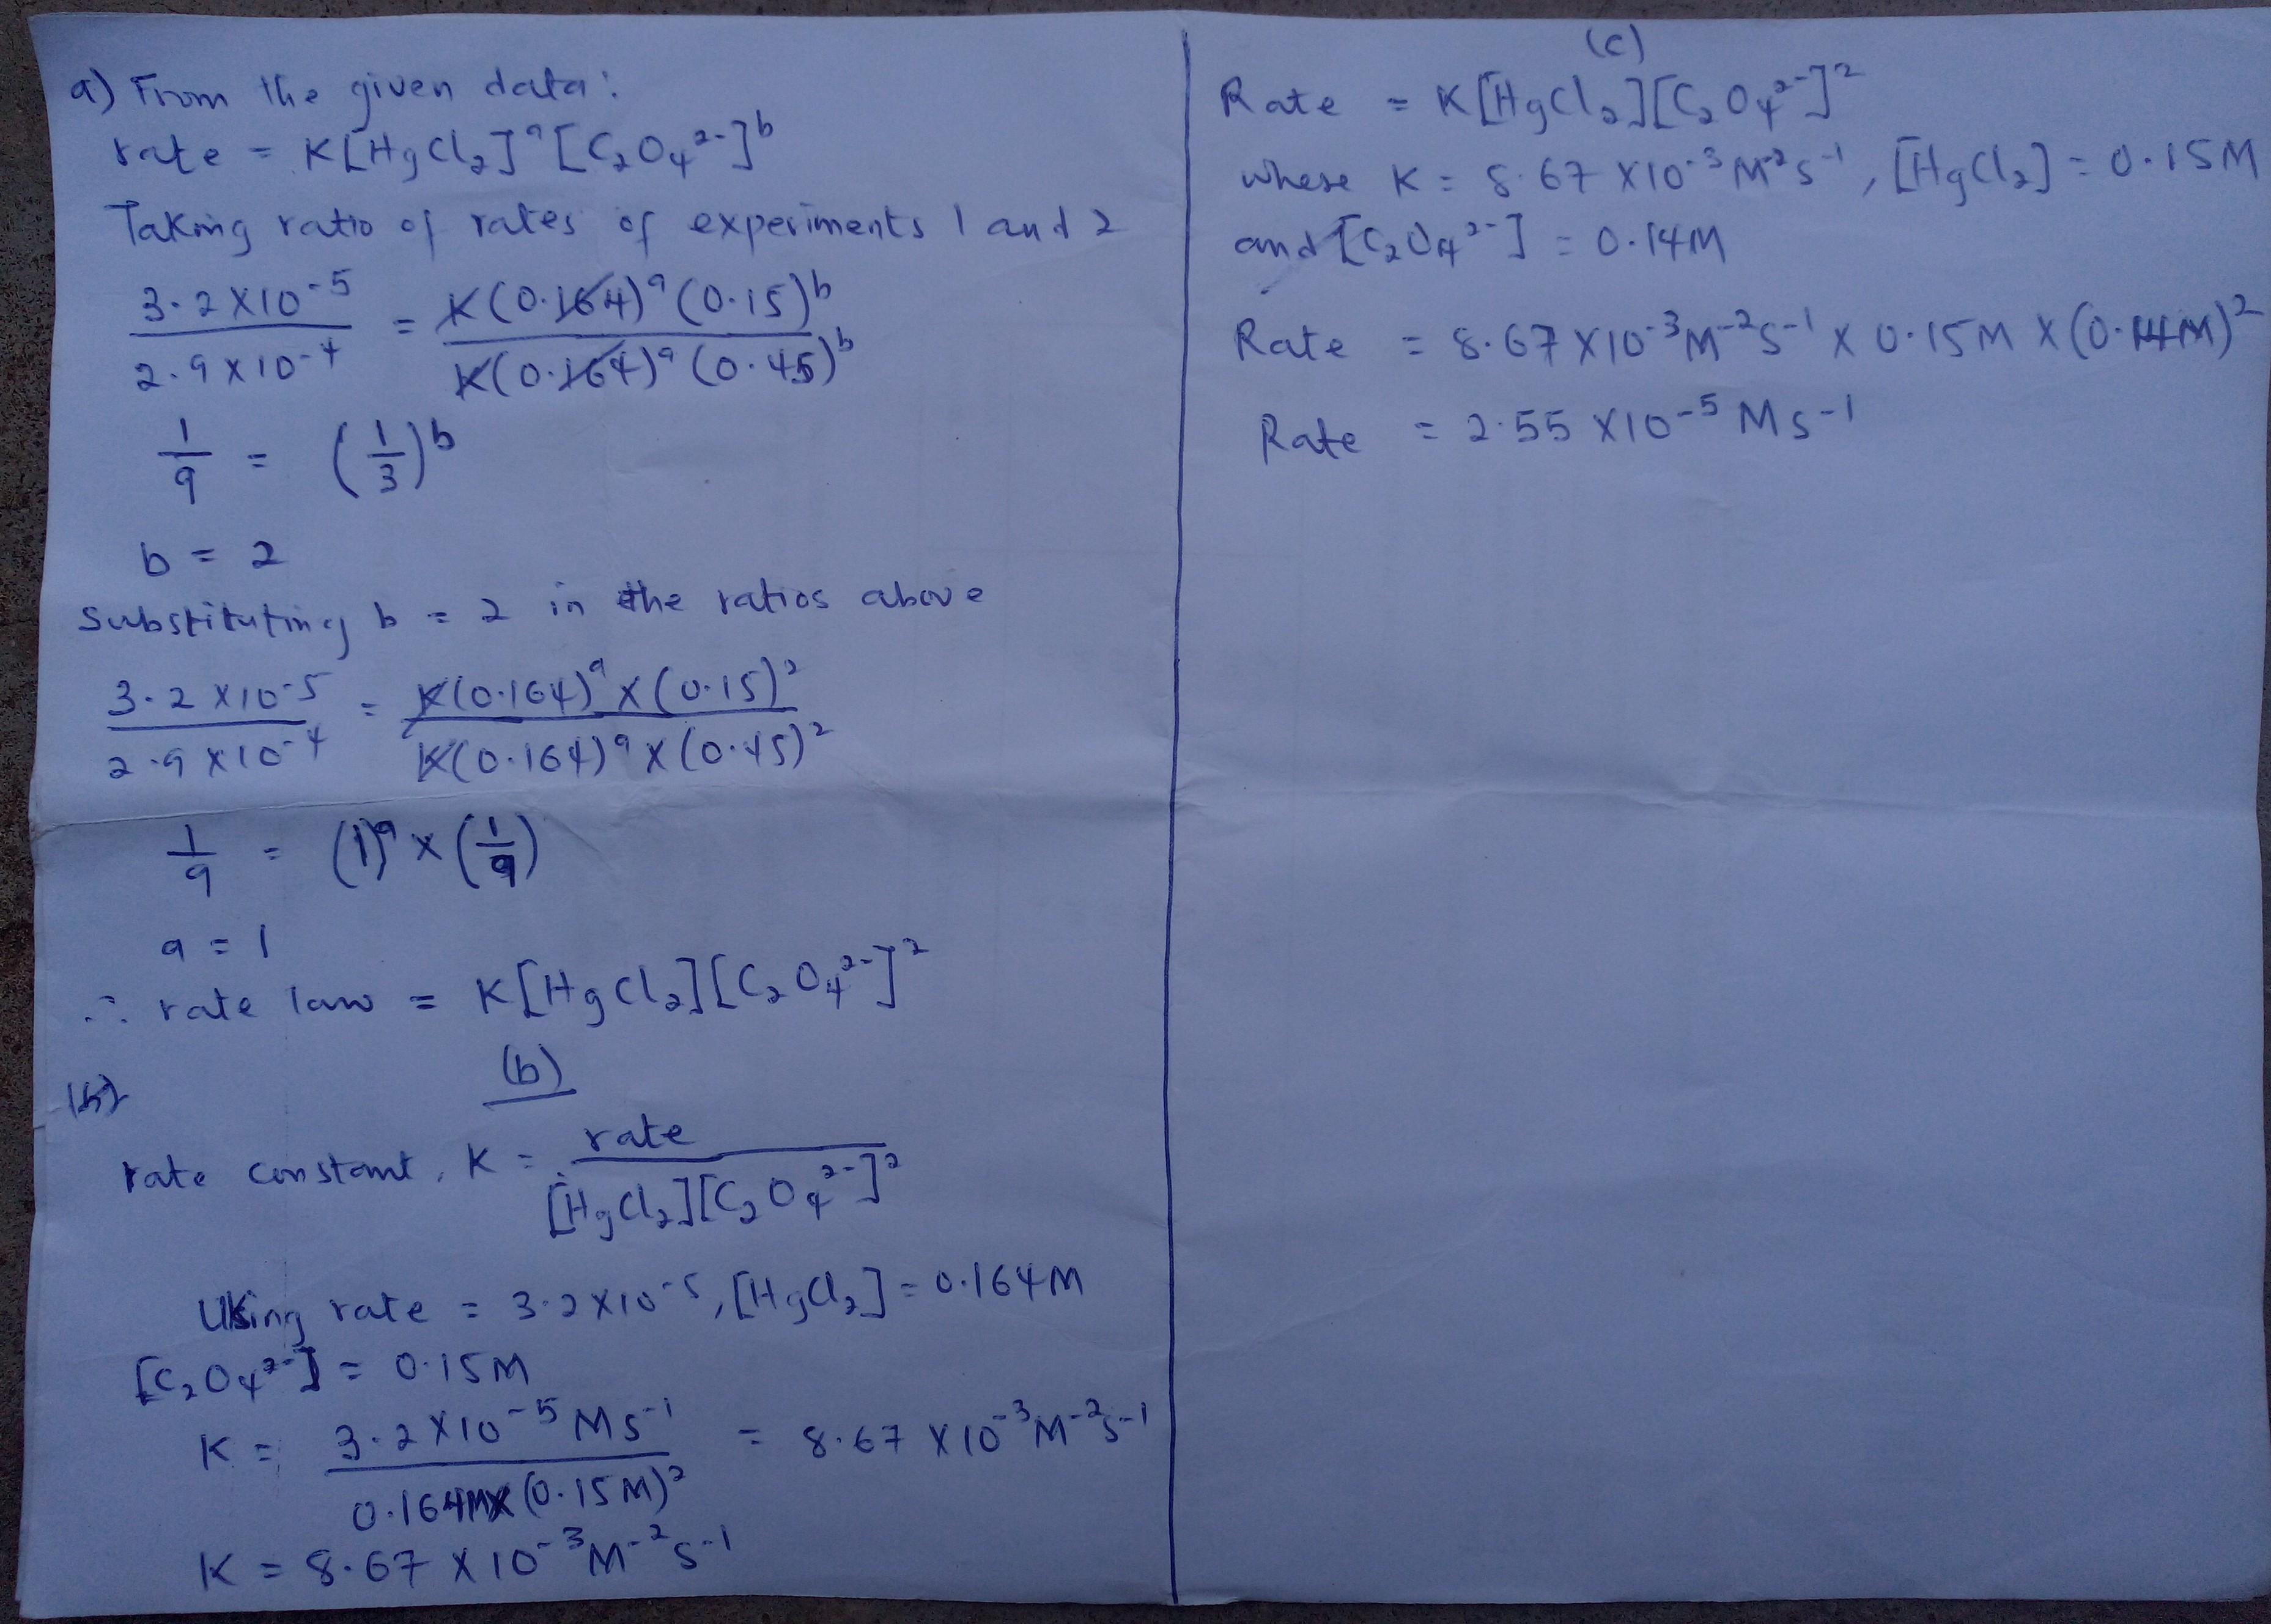 a) From the given data:
rate = K[HgCl₂]ᵃ[C₂O₄²⁻]ᵇ
Taking ratio of rates of experiments 1 and 2
3.2 X10⁻⁵ / 2.9 X10⁻⁴ = K(0.164)ᵃ(0.15)ᵇ / K(0.164)ᵃ(0.45)ᵇ
1/9 = (1/3)ᵇ
b = 2
Substituting b = 2 in the ratios above
3.2 X10⁻⁵ / 2.9 X10⁻⁴ = K(0.164)ᵃ X (0.15)² / K(0.164)ᵃ X (0.45)²
1/9 = (1)ᵃ X (1/9)
a = 1
∴ rate law = K[HgCl₂][C₂O₄²⁻]²
(b)
(b)
rate constant, K = rate / [HgCl₂][C₂O₄²⁻]²
Using rate = 3.2 X10⁻⁵, [HgCl₂] = 0.164M
[C₂O₄²⁻] = 0.15M
K = 3.2 X10⁻⁵ Ms⁻¹ / 0.164M X (0.15M)² = 8.67 X10⁻³ M⁻²s⁻¹
K = 8.67 X 10⁻³ M⁻²s⁻¹
(c)
Rate = K[HgCl₂][C₂O₄²⁻]²
where K = 8.67 X10⁻³ M⁻²s⁻¹, [HgCl₂] = 0.15M
and [C₂O₄²⁻] = 0.14M
Rate = 8.67 X10⁻³ M⁻²s⁻¹ X 0.15M X (0.14M)²
Rate = 2.55 X10⁻⁵ Ms⁻¹